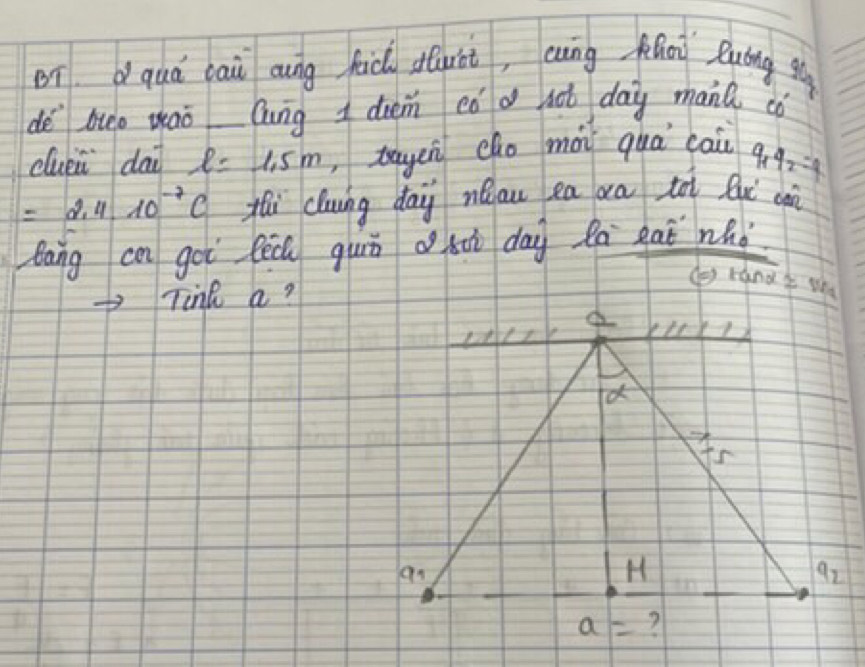 BT. 2 quả cầu cùng kích thước, cùng khối lượng
để treo vào cùng 1 điểm có 2 sợi dây mảnh có
chiều dài l = 1,5 m, truyền cho mỗi quả cầu q1 q2 = q
= 2,4 . 10⁻⁷ C thì chúng đẩy nhau ra xa tới lúc cân
bằng coi góc lệch giữa 2 sợi dây là rất nhỏ.
(=) tanα ≈
→ Tính a ?
α
1,5
q1
H
q2
a = ?